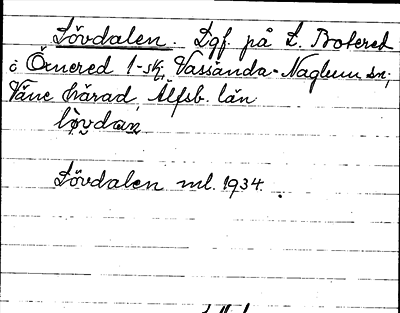 Lövdalen. Lgf. på L. Botered
i Öxnered 1-sk., Vassända-Naglum sn,
Väne härad, Älfsb. län
lövdan
Lövdalen ml. 1934.